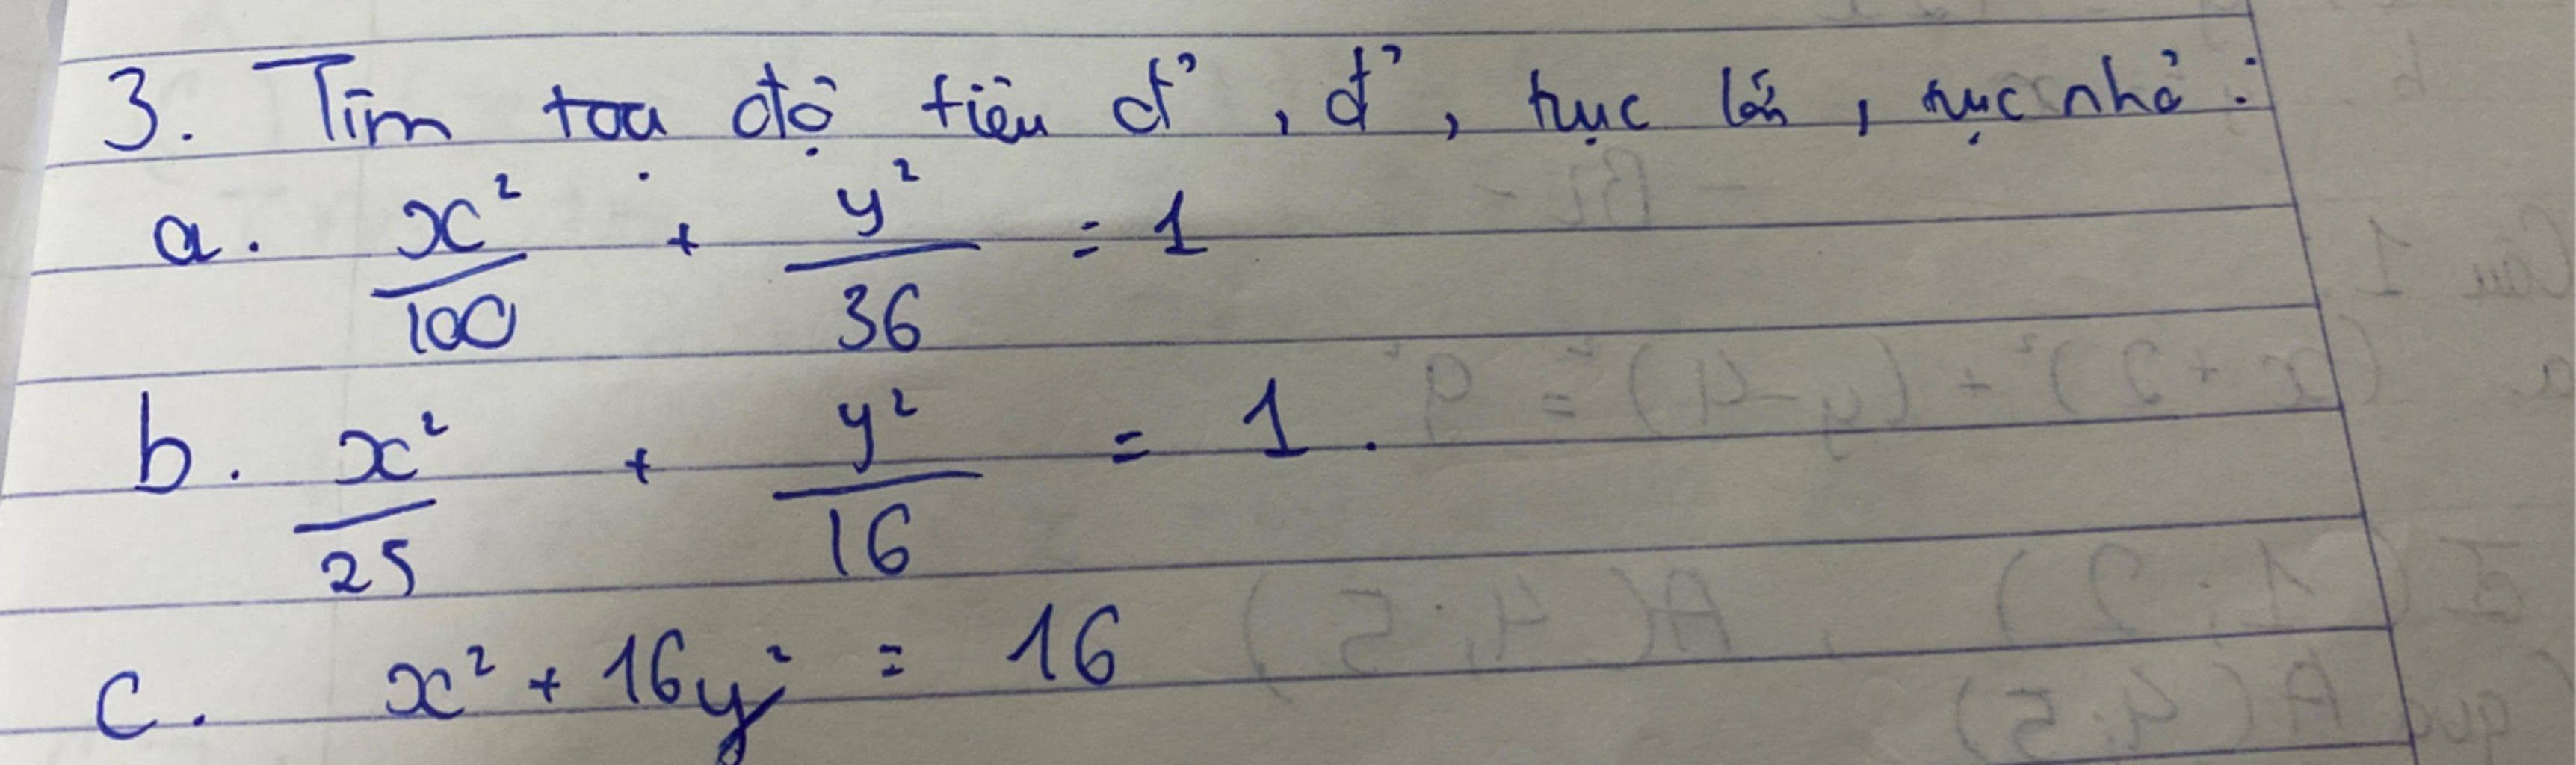 3. Tìm toạ độ tiêu đ', đ', trục lớn, trục nhỏ:
a. x²/100 + y²/36 = 1
b. x²/25 + y²/16 = 1.
c. x² + 16y² = 16